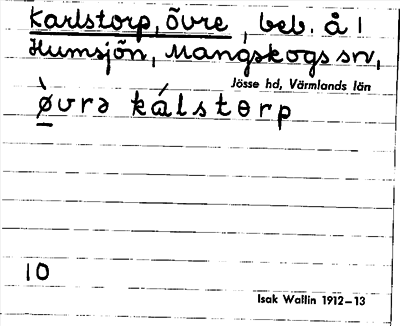 Karlstorp, övre, beb. å 1
Humsjön, Mangskogs sn,
Jösse hd, Värmlands län
ø̀vrə kálstɵrp
10
Isak Wallin 1912–13